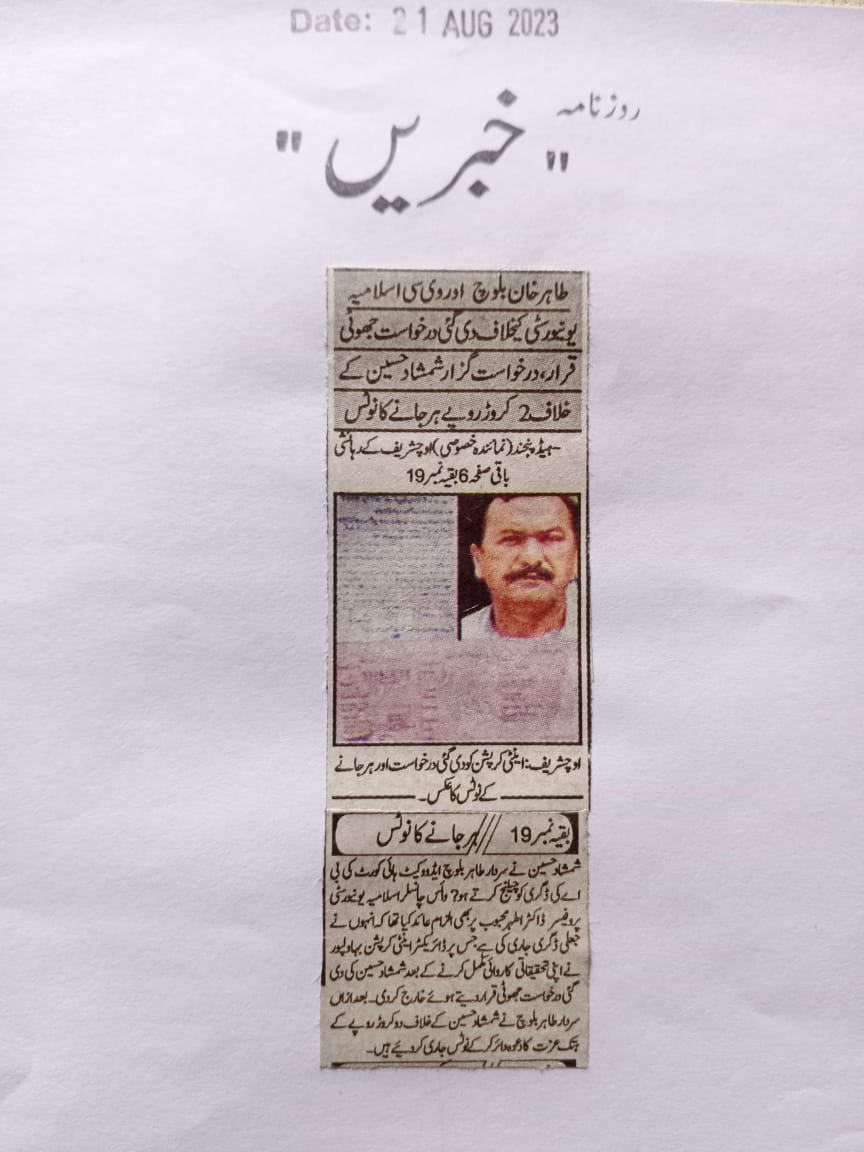 Date: 21 AUG 2023
روزنامہ
"خبریں"
طاہر خان بلوچ اور وی سی اسلامیہ
یونیورسٹی کیخلاف دی گئی درخواست جھوٹی
قرار، درخواست گزار شمشاد حسین کے
خلاف 2 کروڑ روپے ہرجانے کا نوٹس
ہیڈ پنجند (نمائندہ خصوصی) اوچشریف کے رہائشی
باقی صفحہ 6 بقیہ نمبر 19
اوچشریف: اینٹی کرپشن کو دی گئی درخواست اور ہرجانے
کے نوٹس کا عکس۔
بقیہ نمبر 19 /// ہرجانے کا نوٹس
شمشاد حسین نے سردار طاہر بلوچ ایڈووکیٹ ہائی کورٹ کی بی
اے کی ڈگری کو چیلنج کرتے ہو? وائس چانسلر اسلامیہ یونیورسٹی
پروفیسر ڈاکٹر اطہر محبوب پر بھی الزام عائد کیا تھا کہ انہوں نے
جعلی ڈگری جاری کی ہے جس پر ڈائریکٹر اینٹی کرپشن بہاولپور
نے اپنی تحقیقاتی کاروائی مکمل کرنے کے بعد شمشاد حسین کی دی
گئی درخواست جھوٹی قرار دیتے ہوئے خارج کردی۔ بعدازاں
سردار طاہر بلوچ نے شمشاد حسین کے خلاف دو کروڑ روپے کے
ہتک عزت کا دعوہ دائر کر کے نوٹس جاری کردیئے ہیں۔